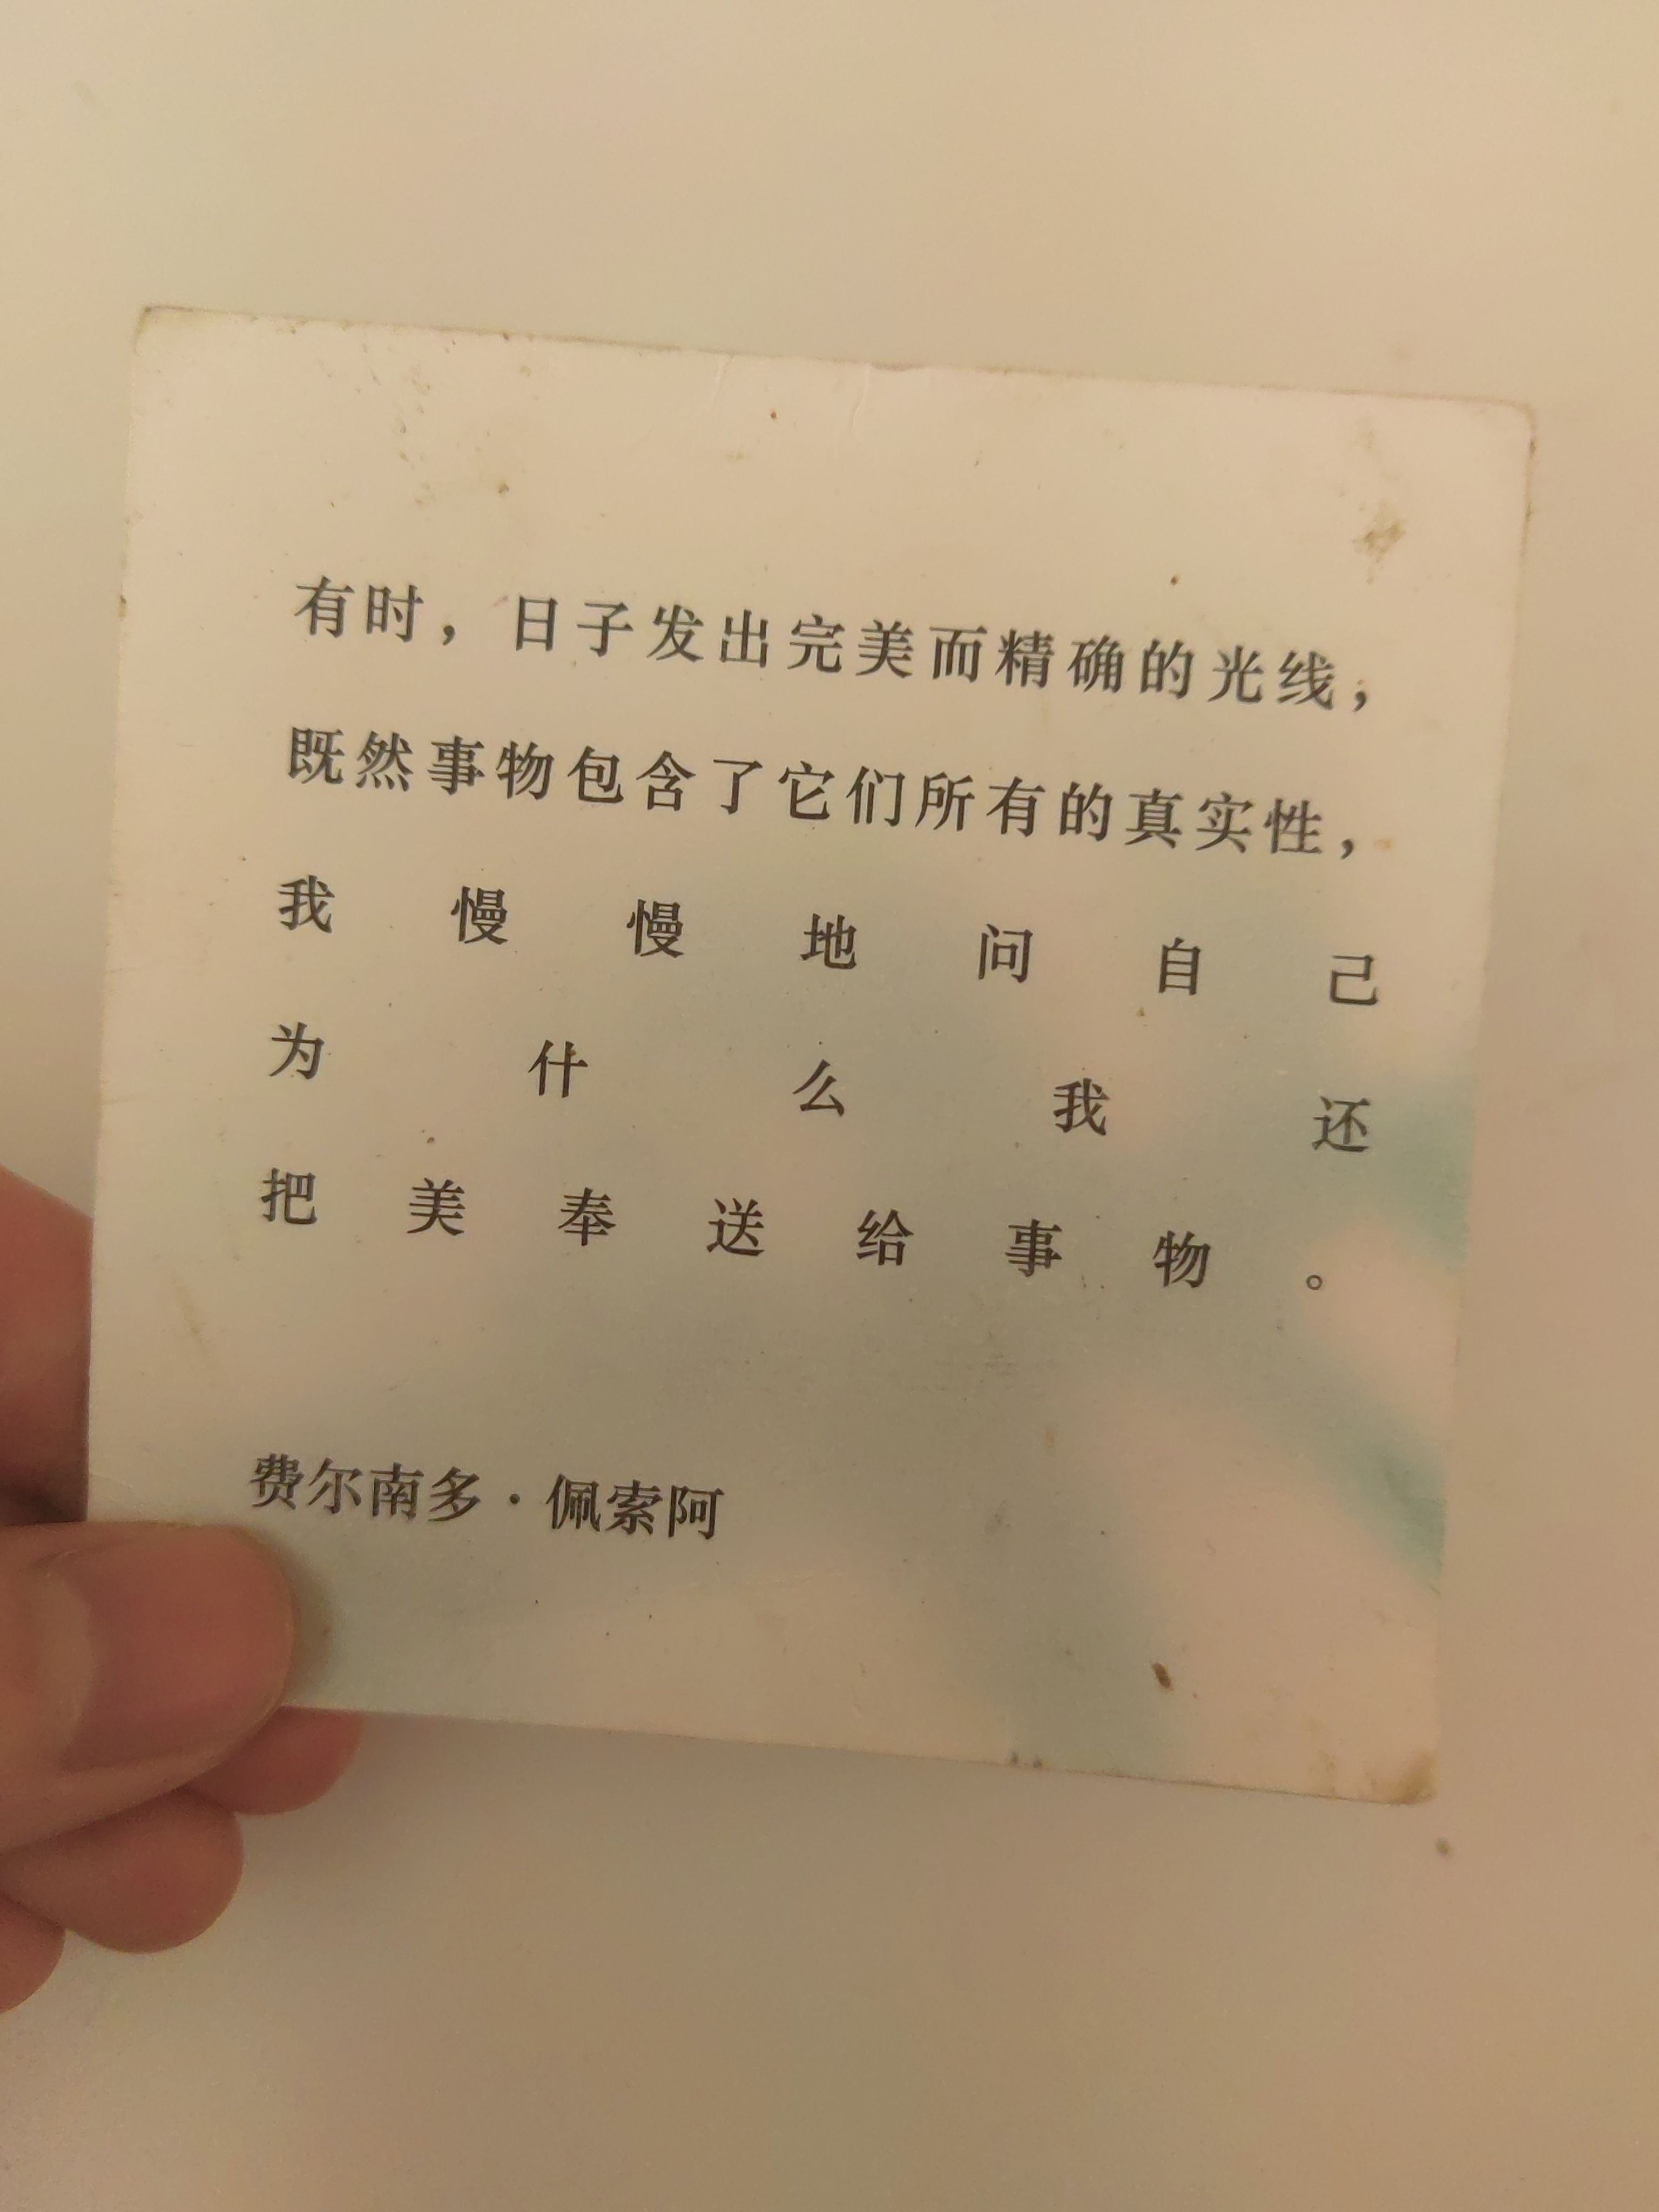 有时，日子发出完美而精确的光线，
既然事物包含了它们所有的真实性，
我慢慢地问自己
为什么我还
把美奉送给事物。
费尔南多·佩索阿